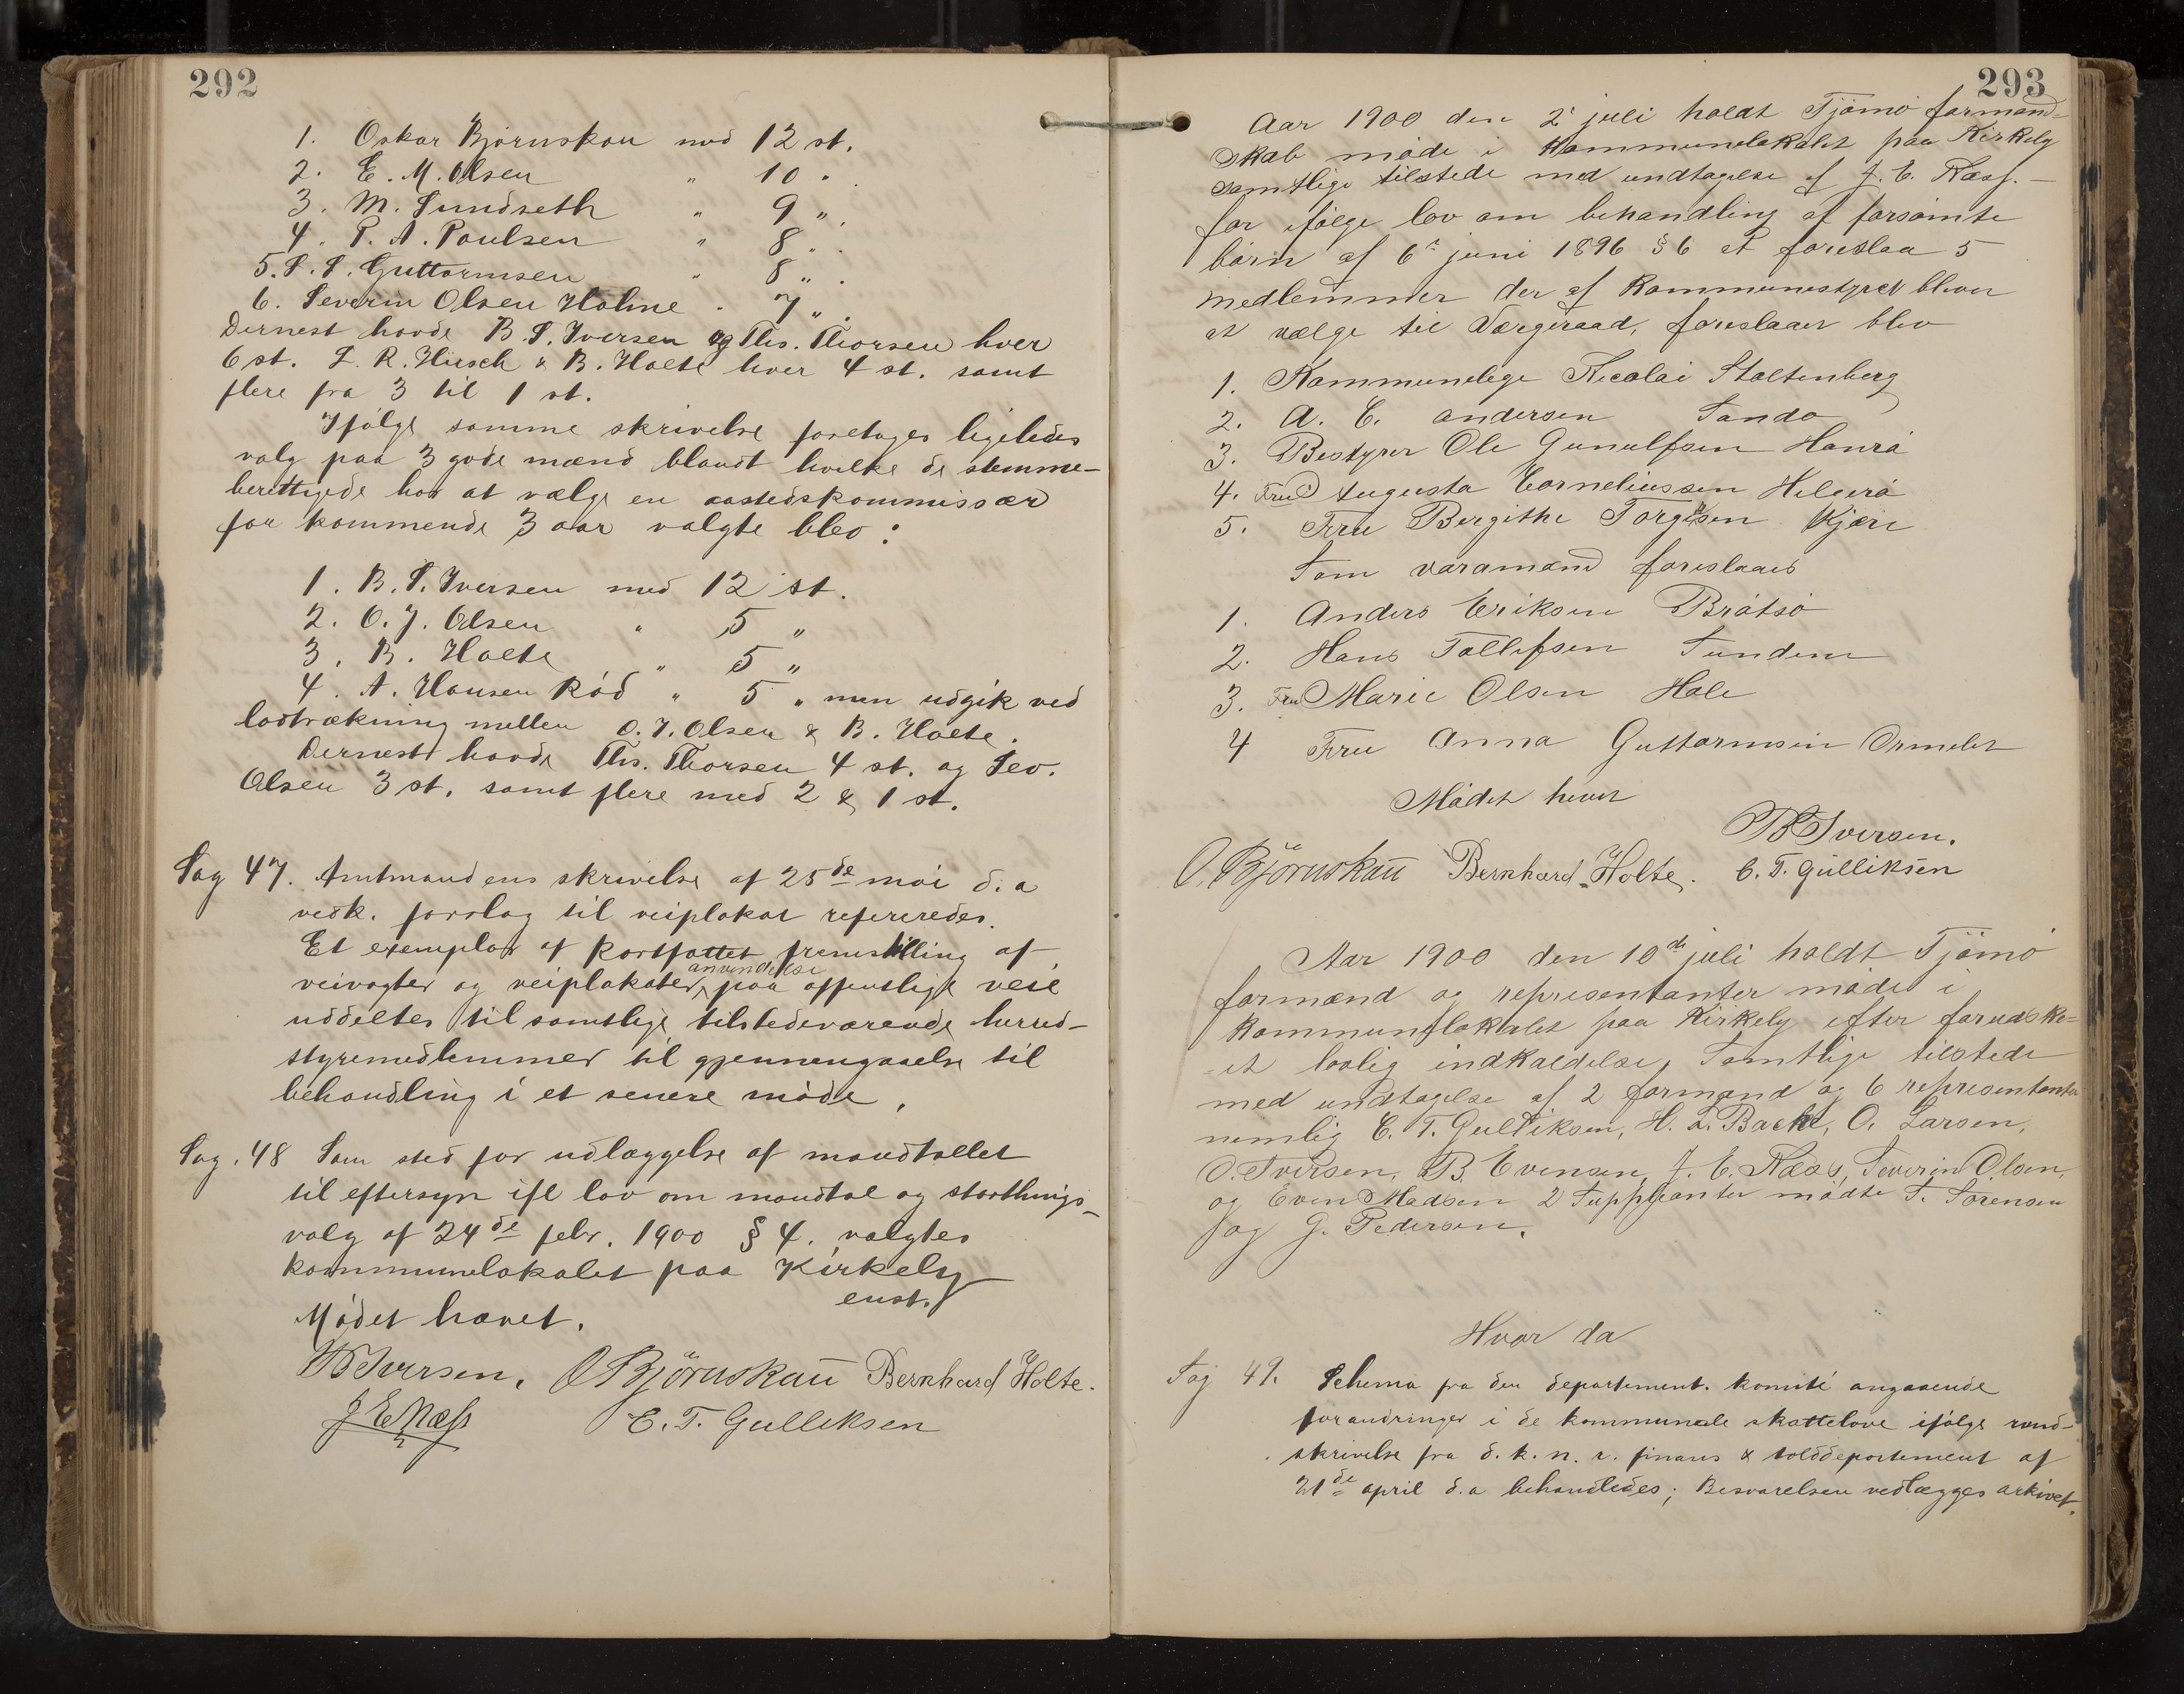 292
1. Oskar Bjørnskau med 12 st.
2. E. M. Olsen " 10 " .
3. M. Sundseth " 9 " .
4. P. A. Poulsen " 8 " .
5. S. S. Guttormsen " 8 " .
6. Severin Olsen Holme . 7 " .
Dernest havde B. S. Iversen og Ths. Thorsen hver
6 st. L. R. Hirsch & B. Holte hver 4 st. samt
flere fra 3 til 1 st.
Ifølge samme skrivelse foretages ligeledes
valg paa 3 gode mænd blandt hvilke de stemme-
berettigede har at vælge en aastedskommissær
for kommende 3 aar valgte blev :
1. B. S. Iversen med 12 st.
2. O. J. Olsen " 5 "
3. B. Holte " 5 "
4. A. Hansen Rød " 5 " men udgik ved
lodtrækning mellem O. J. Olsen & B. Holte.
Dernest havde Ths. Thorsen 4 st. og Sev.
Olsen 3 st. samt flere med 2 & 1 st.
Sag 47. Amtmandens skrivelse af 25de mai d. a
vedk. forslag til veiplakat refereredes.
Et exemplar af kortfattet fremstilling af
anvendelse
veivogter og veiplakater paa offentlige veie
uddeltes til samtlige tilstedeværende herred-
styremedlemmer til gjennemgaaelse til
behandling i et senere møde.
Sag. 48 Som sted for udlæggelse af mandtallet
til eftersyn ifl lov om mandtal og storthings-
valg af 24de febr. 1900 § 4. valgtes
kommunelokalet paa Kirkely
enst.
Mødet hævet.
B Iversen. O Björnskau Bernhard Holte.
J E Næss E. T. Gulliksen
293
Aar 1900 den 2 juli holdt Tjømø formand-
skab møde i kommunelokalet paa Kirkely
samtlige tilstede med undtagelse af J. E. Næss. -
for ifølge lov om behandling af forsømte
børn af 6te juni 1896 § 6 at foreslaa 5
medlemmer der af kommunestyret bliver
at vælge til Værgeraad, foreslaaet blev
1. Kommunelege Nicolai Stoltenberg
2. A. C. Andersen Sando
3. Bestyrer Ole Gunulfsen Haurø
4. Fru Augusta Corneliussen Helgerø
5. Fru Bergithe Torgersen Kjære
Som varamænd foreslaaes
1. Anders Eriksen Bråtsø
2. Hans Tollefsen Sundene
3. Fru Marie Olsen Hole
4 Fru Anna Guttormsen Ormelet
Mødet hevet
B Iversen.
O. Björnskau Bernhard Holte. E. T. Gulliksen
Aar 1900 den 10de juli holdt Tjømø
formænd og representanter møde i
kommunelokalet paa Kirkely efter forudske-
et lovlig indkaldelse, Samtlige tilstede
med undtagelse af 2 formænd og 6 representanter
nemlig E. T. Gulliksen, H. L. Backe, O. Larsen,
O. Iversen, B. Evensen, J. E. Næss, Severin Olsen,
og Even Madsen 2 Suppleanter mødte S. Sørensen
og G. Pedersen.
Hvor da
Sag 49. Schema fra den department. komité angaaende
forandringer i de kommunale skattelove ifølge rund-
skrivelse fra d. k. n. r. finans & tolddepartement af
21de april d. a behandledes; Besvarelsen vedlægges arkivet.